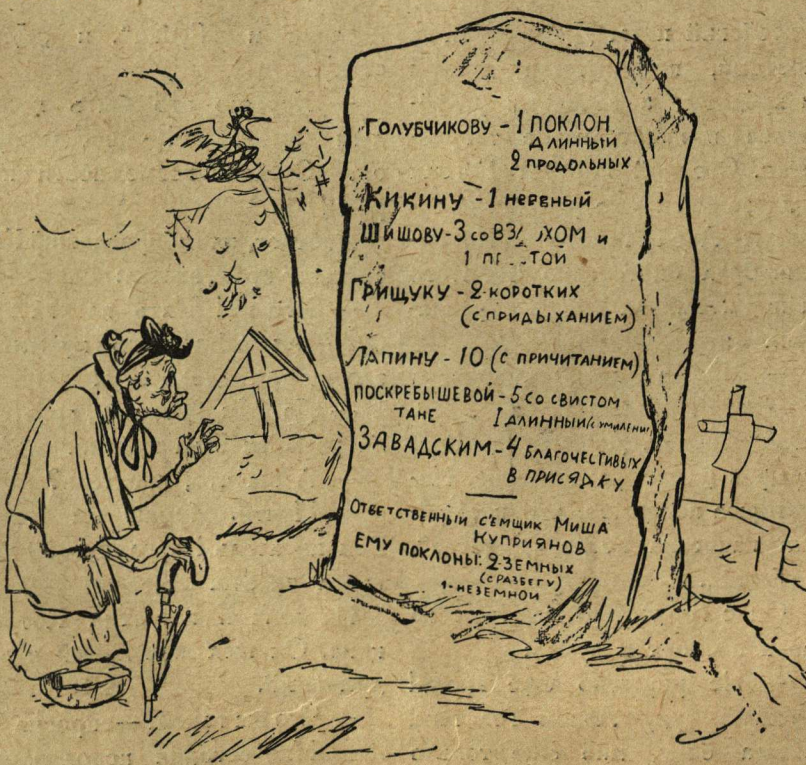 ГОЛУБЧИКОВУ - 1 ПОКЛОН
ДЛИННЫЙ
2 ПРОДОЛЬНЫХ
КИКИНУ - 1 НЕРВНЫЙ
ШИШОВУ - 3 СО ВЗДОХОМ И
1 ПРОСТОЙ
ГРИЩУКУ - 2 КОРОТКИХ
(С ПРИДЫХАНИЕМ)
ЛАПИНУ - 10 (С ПРИЧИТАНИЕМ)
ПОСКРЕБЫШЕВОЙ - 5 СО СВИСТОМ
ТАНЕ 1 ДЛИННЫЙ (С УМИЛЕНИ
ЗАВАДСКИМ - 4 БЛАГОЧЕСТИВЫХ
В ПРИСЯДКУ
ОТВЕТСТВЕННЫЙ С'ЕМЩИК МИША
КУПРИЯНОВ
ЕМУ ПОКЛОНЫ: 2 ЗЕМНЫХ
(С РАЗБЕГУ)
1 - НЕЗЕМНОЙ